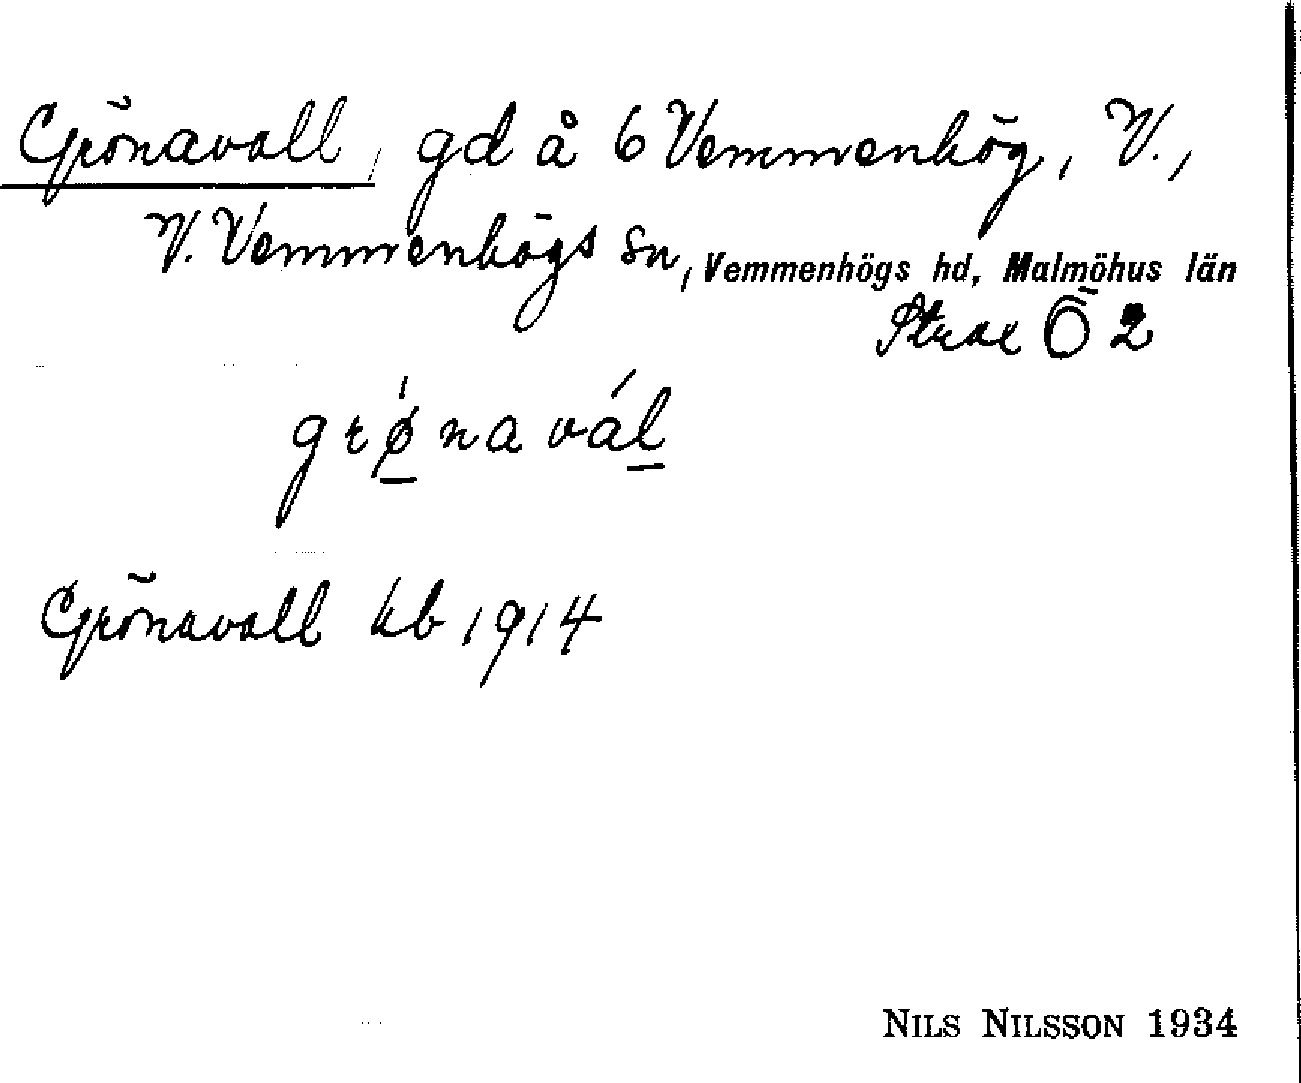 Grönavall, gd å 6 Vemmenhög, V.,
V. Vemmenhögs sn, Vemmenhögs hd, Malmöhus län
Ö 2
grǿ̱naváḻ
Grönavall kb 1914
NILS NILSSON 1934